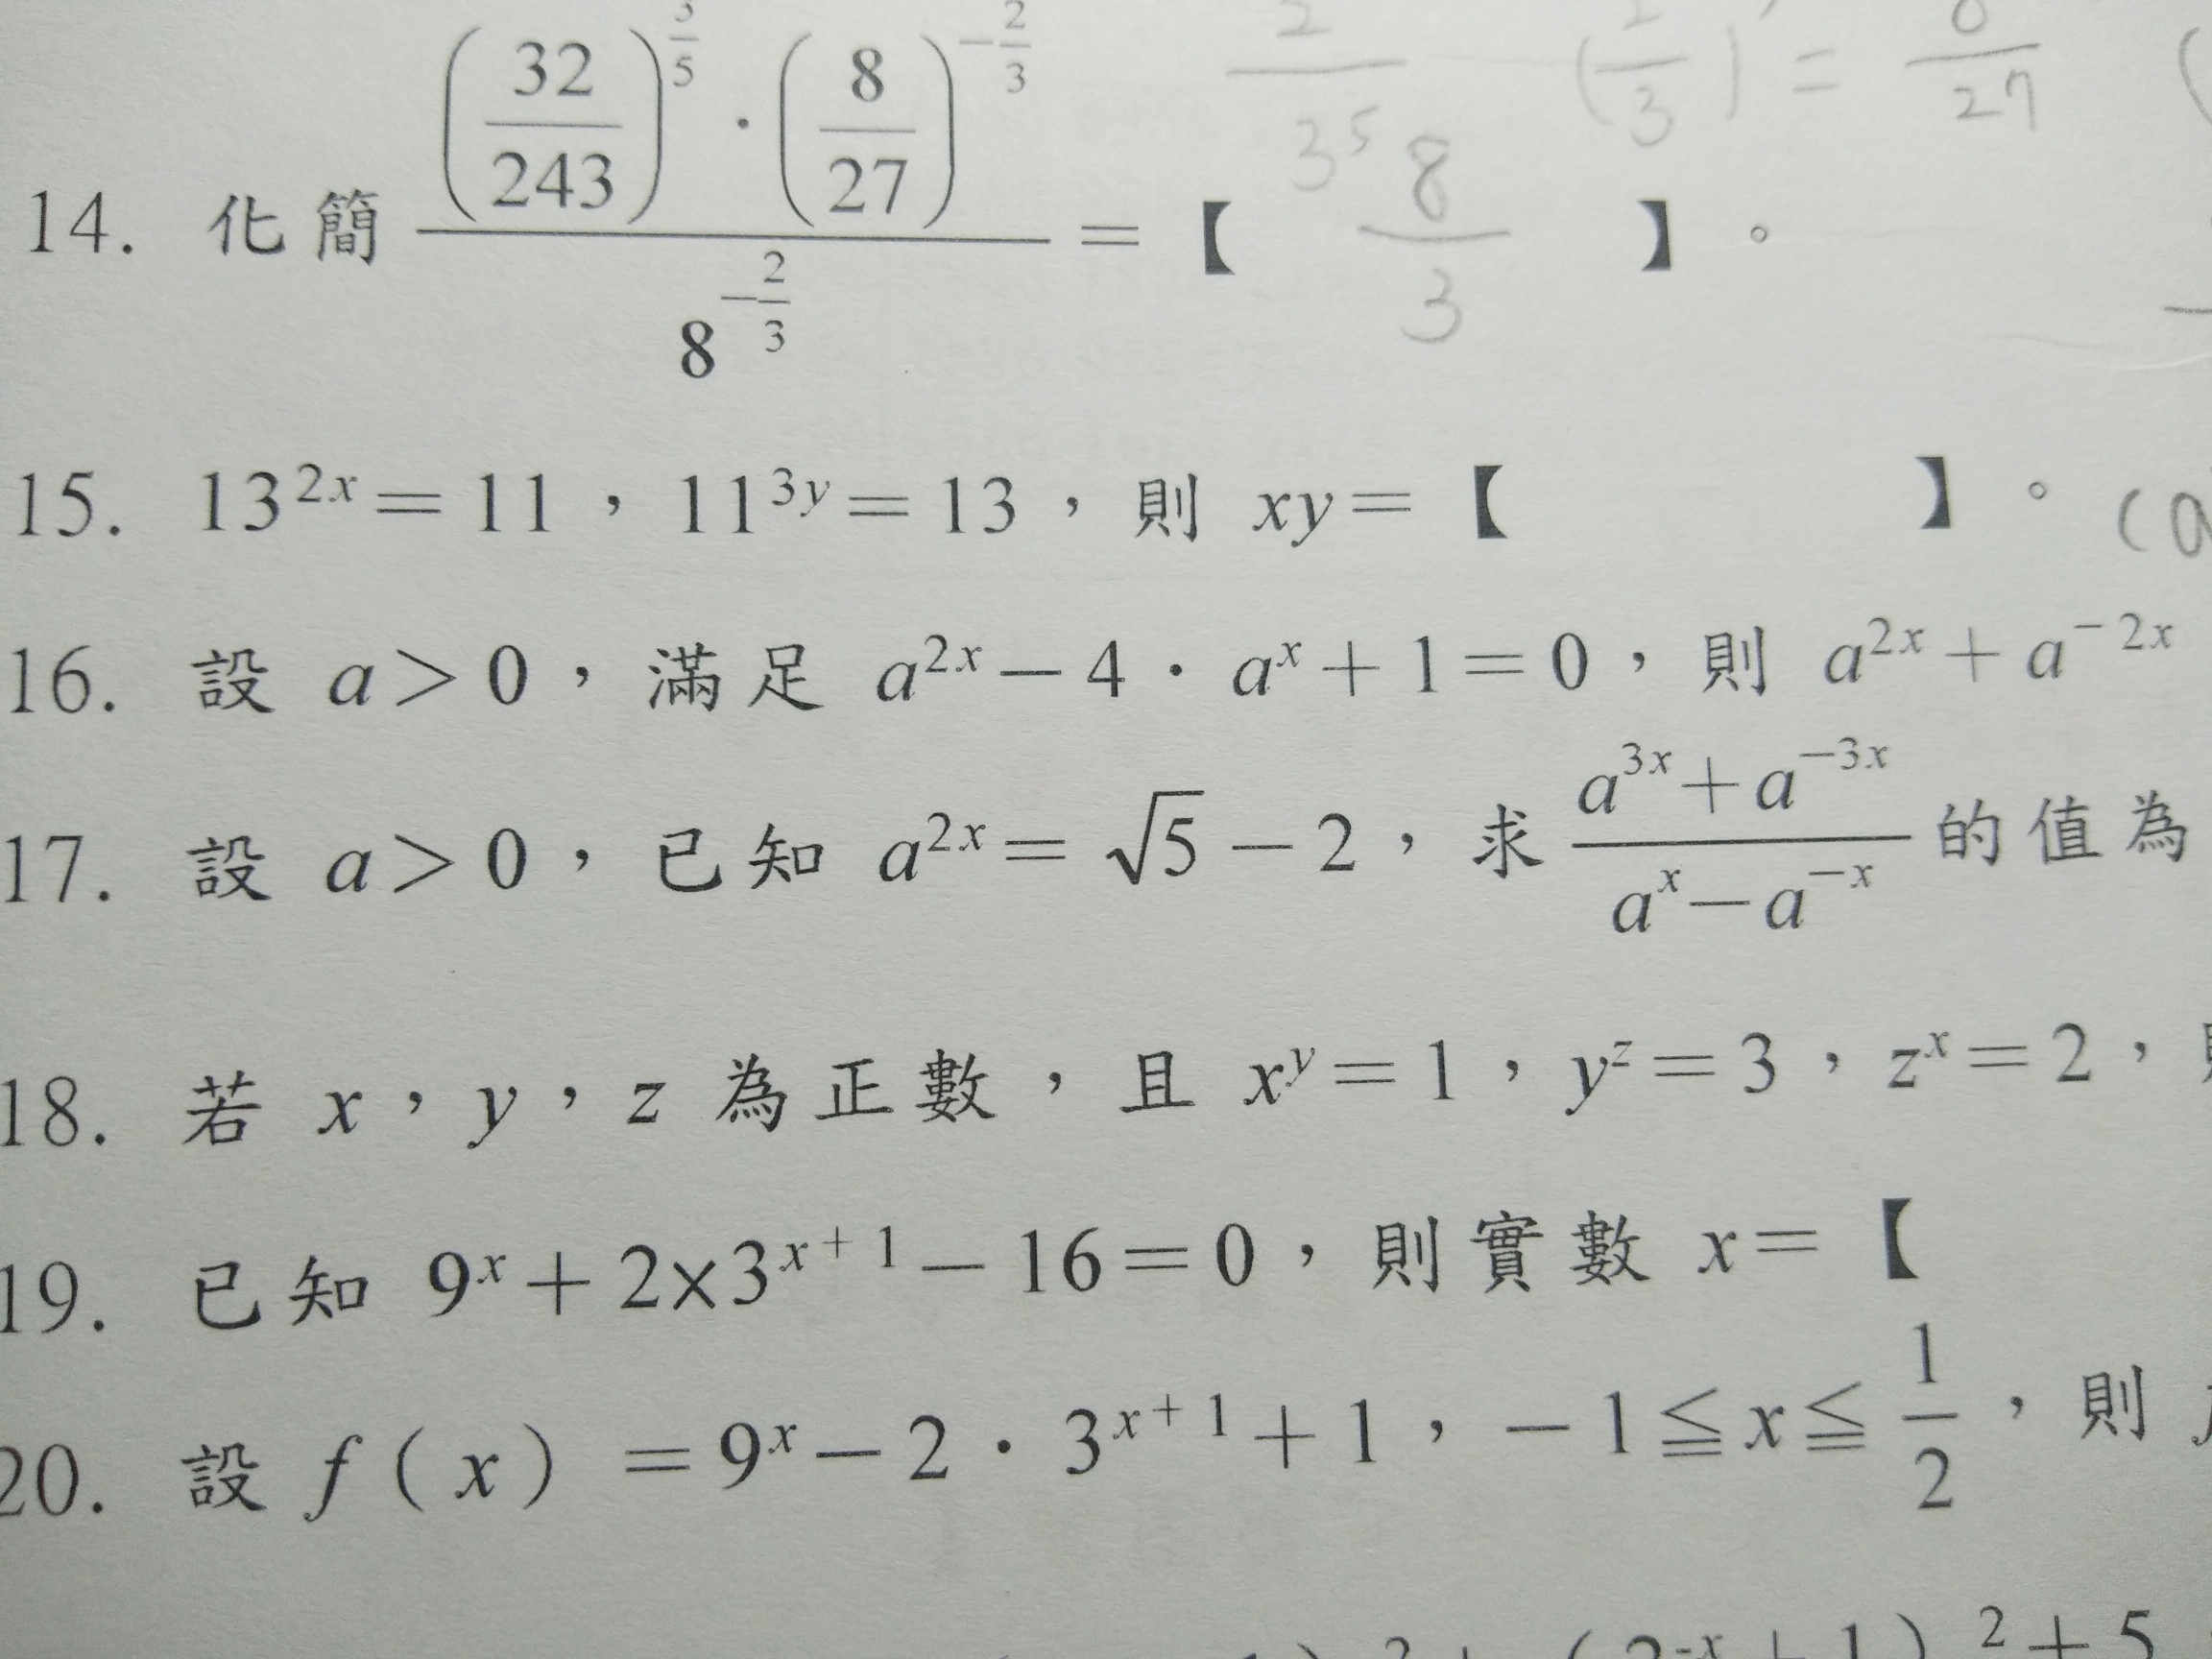 14. 化簡 \frac{\left(\frac{32}{243}\right)^{\frac{3}{5}} \cdot \left(\frac{8}{27}\right)^{-\frac{2}{3}}}{8^{-\frac{2}{3}}} =【 \frac{8}{3} 】。
\frac{2}{3^5} (\frac{2}{3})^, = \frac{8}{27} (
15. 13^{2x}=11，11^{3y}=13，則 xy=【 】。 (a
16. 設 a>0，滿足 a^{2x}-4・a^x+1=0，則 a^{2x}+a^{-2x}
17. 設 a>0，已知 a^{2x}=\sqrt{5}-2，求 \frac{a^{3x}+a^{-3x}}{a^x-a^{-x}} 的值為
18. 若 x，y，z 為正數，且 x^y=1，y^z=3，z^x=2，
19. 已知 9^x+2×3^{x+1}-16=0，則實數 x=【
20. 設 f(x)=9^x-2・3^{x+1}+1，-1≦x≦\frac{1}{2}，則
)^2+(2^{-x}+1)^2+5